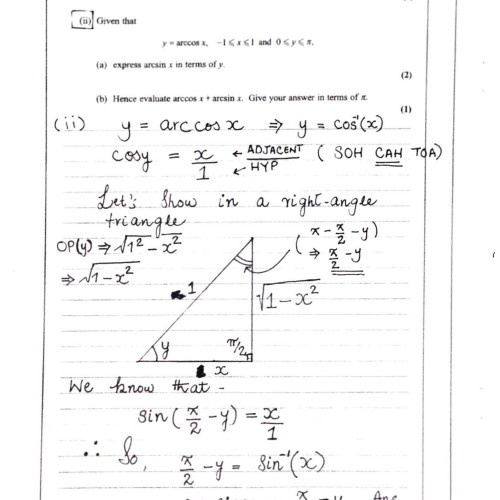 (ii) Given that
y = arccos x, −1 ⩽ x ⩽ 1 and 0 ⩽ y ⩽ π.
(a) express arcsin x in terms of y.
(2)
(b) Hence evaluate arccos x + arcsin x. Give your answer in terms of π.
(1)
(ii) y = arccos x ⇒ y = cos⁻¹(x)
cos y = x/1 ← ADJACENT ← HYP ( SOH CAH TOA)
Let's Show in a right-angle
triangle
OP(y) ⇒ √1² − x²
⇒ √1 − x²
( π − π/2 − y)
⇒ π/2 − y
1
√1 − x²
y
π/2
x
We know that -
sin ( π/2 − y) = x/1
∴ So, π/2 − y = Sin⁻¹(x)
π − y Ans